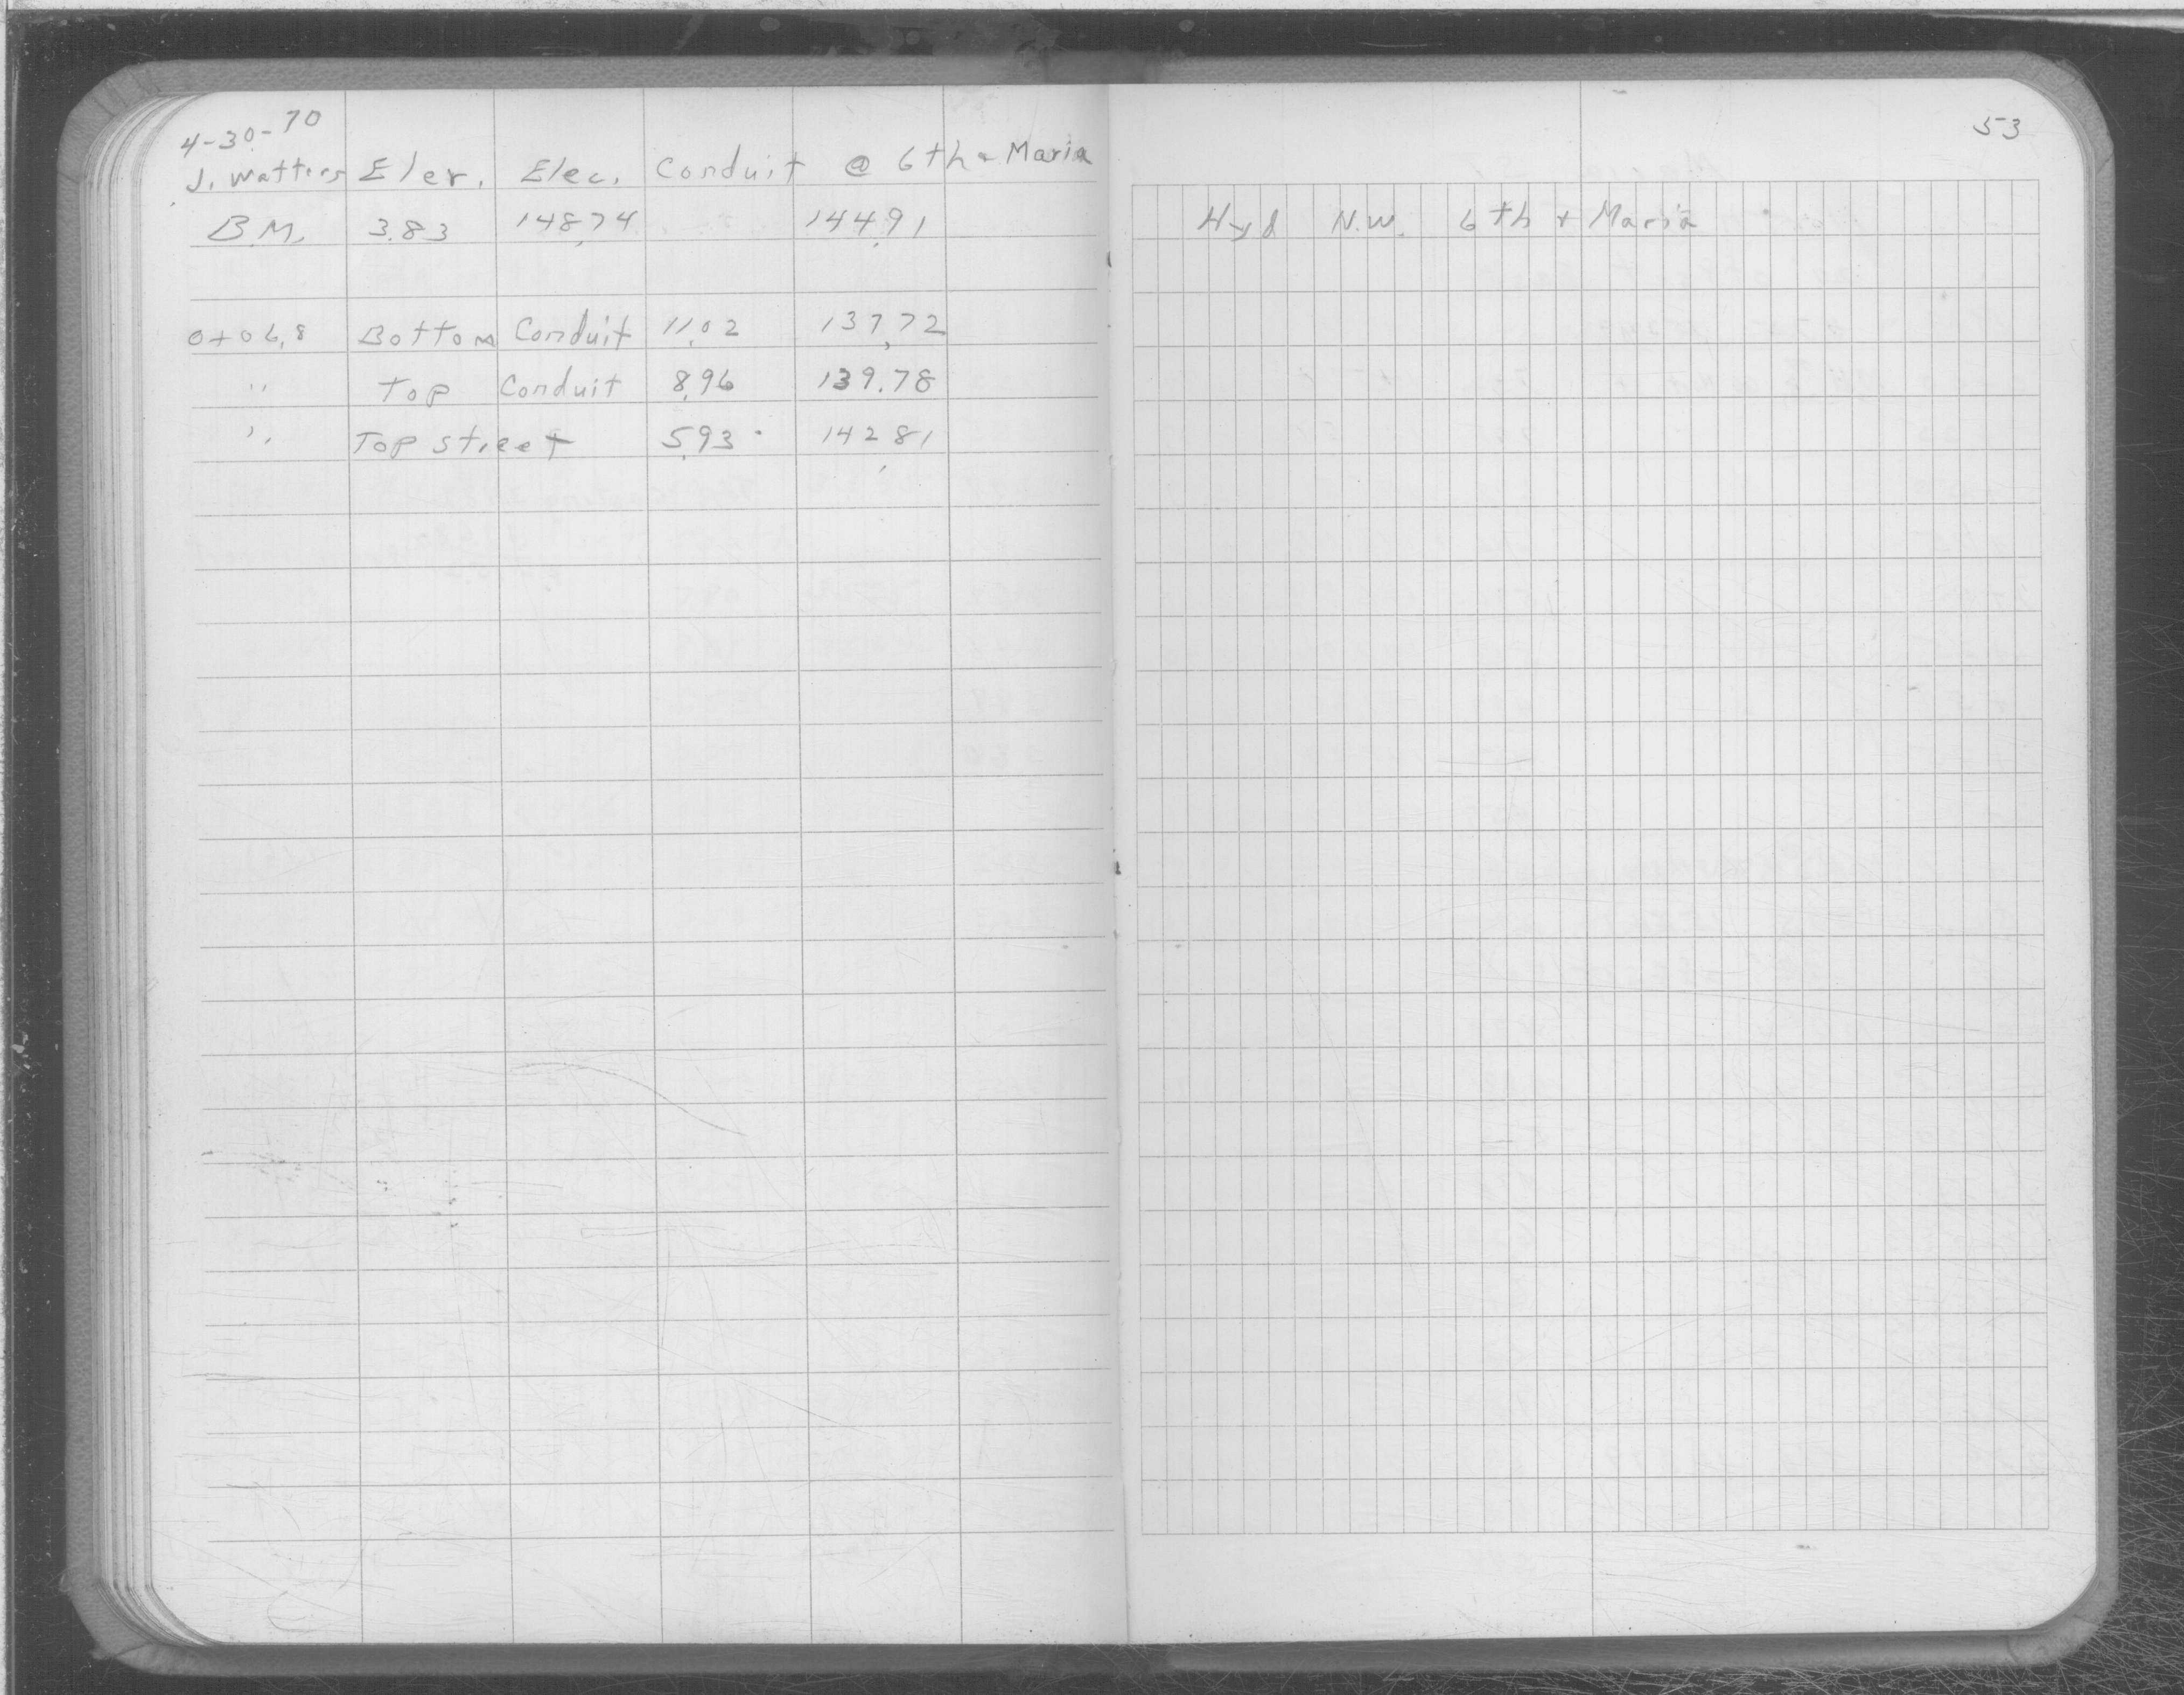 4-30-70
53
J. Watters Elev. Elec. Conduit @ 6th & Maria
B.M. 3.83 148.74 144.91 Hyd N.W. 6th + Maria
0+06.8 Bottom Conduit 11.02 137.72
" Top Conduit 8.96 139.78
" Top Street 5.93 142.81